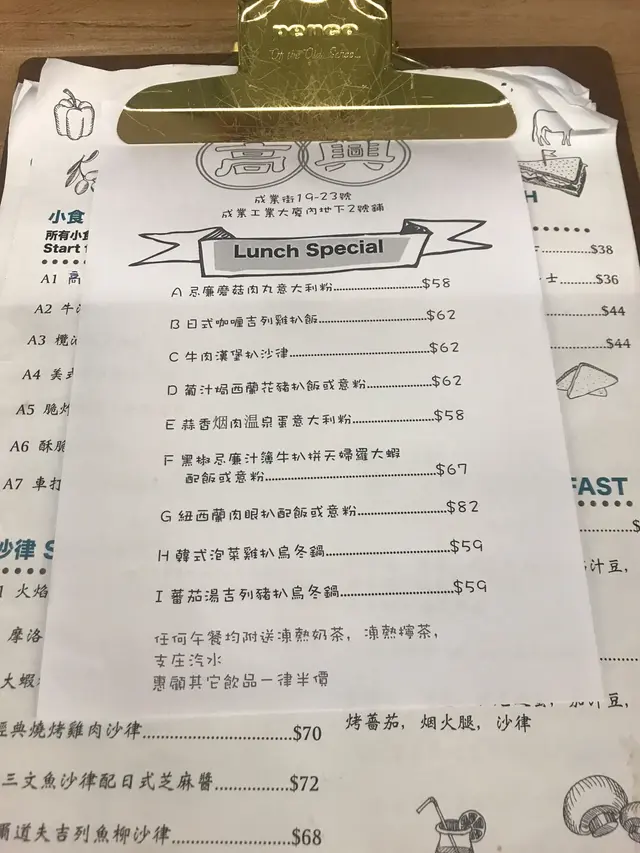 penco
On the Old School
高興
成業街19-23號
成業工業大廈內地下2號鋪
Lunch Special
A 忌廉磨菇肉丸意大利粉 $58
B 日式咖喱吉列雞扒飯 $62
C 牛肉漢堡扒沙律 $62
D 葡汁焗西蘭花豬扒飯或意粉 $62
E 蒜香烟肉温泉蛋意大利粉 $58
F 黑椒忌廉汁薄牛扒拼天婦羅大蝦
配飯或意粉 $67
G 紐西蘭肉眼扒配飯或意粉 $82
H 韓式泡菜雞扒烏冬鍋 $59
I 蕃茄湯吉列豬扒烏冬鍋 $59
任何午餐均附送凍熱奶茶，凍熱檸茶，
支庄汽水
惠顧其它飲品一律半價
小食
所有小食
Start
A1
A2 牛
A3 欖
A4 美式
A5 脆炸
A6 酥脆
A7 車打
沙律 S
火焰
摩洛
大蝦
經典燒烤雞肉沙律 $70
三文魚沙律配日式芝麻醬 $72
爾道夫吉列魚柳沙律 $68
H
$38
士 $36
$44
$44
FAST
汁豆，
烤蕃茄，烟火腿，沙律